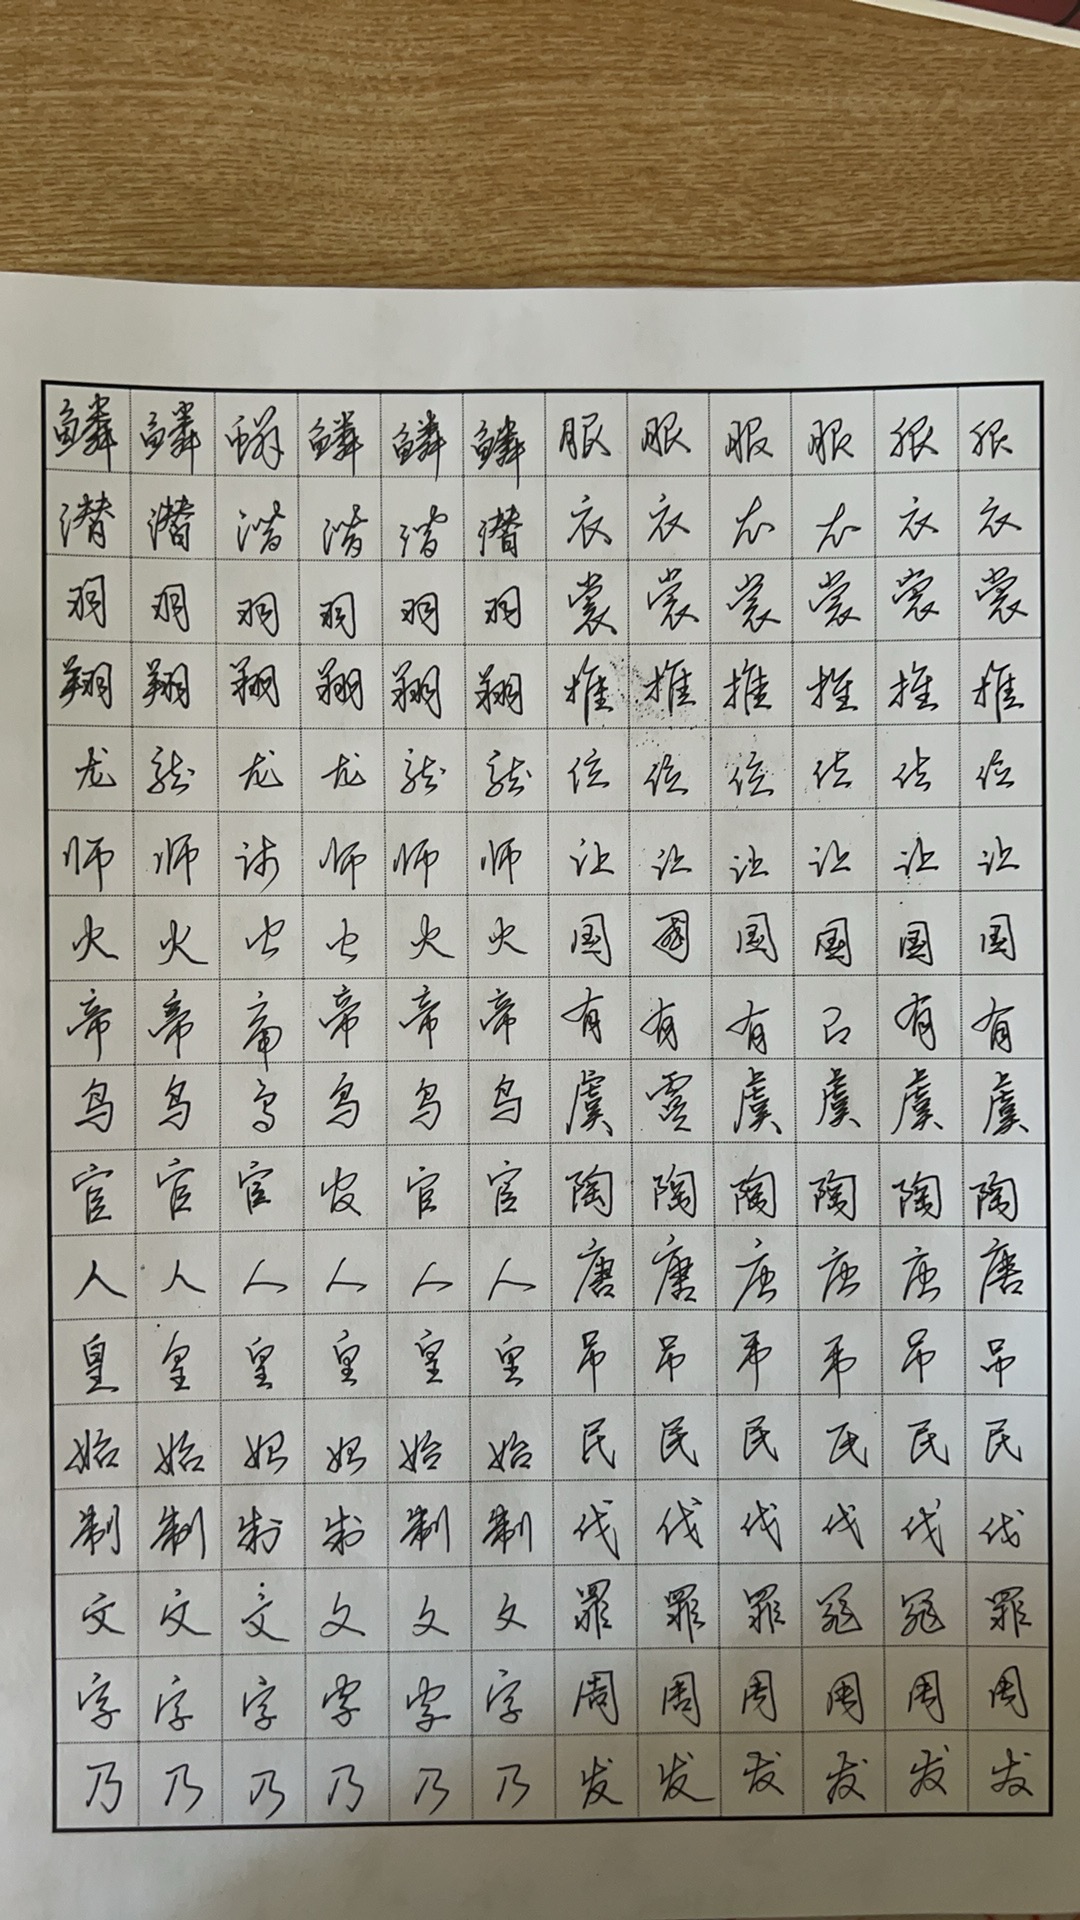 鳞鳞鳞鳞鳞鳞服服服服服服
潜潜潜潜潜潜衣衣衣衣衣衣
羽羽羽羽羽羽裳裳裳裳裳裳
翔翔翔翔翔翔推推推推推推
龙龙龙龙龙龙位位位位位位
师师师师师师让让让让让让
火火火火火火国國国国国国
帝帝帝帝帝帝有有有有有有
鸟鸟鸟鸟鸟鸟虞虞虞虞虞虞
官官官官官官陶陶陶陶陶陶
人人人人人人唐唐唐唐唐唐
皇皇皇皇皇皇吊吊吊吊吊吊
始始始始始始民民民民民民
制制制制制制伐伐伐伐伐伐
文文文文文文罪罪罪罪罪罪
字字字字字字周周周周周周
乃乃乃乃乃乃发发发发发发